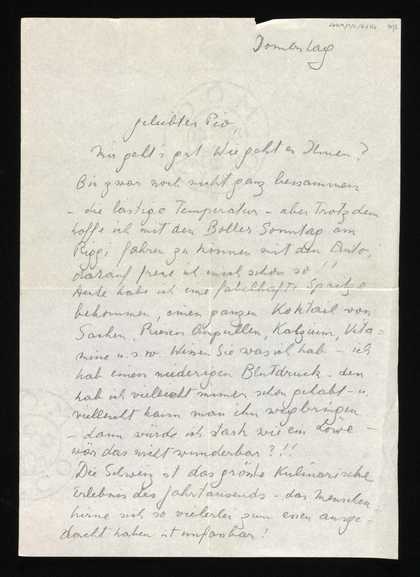 Donnerstag
geliebter Pio,
Mir geht's gut Wie geht es Ihnen?
Bin zwar noch nicht ganz beisammen
- die lästige Temperatur - aber Trotzdem
hoffe ich mit den Boller Sonntag am
Riggi fahren zu können mit dem Auto,
darauf freue ich mich schon so!!
Heute habe ich eine fabelhafte Spritze
bekommen, einen ganzen Koktail von
Sachen, Riesen Ampullen, Kalzium, Vita-
mine u.s.w. Wissen Sie was ich hab - ich
hab einen niederigen Blutdruck - den
hab ich vielleicht immer schon gehabt - u
vielleicht kann man ihn wegbringen
- dann würde ich stark wie ein Löwe -
wär das nicht wunderbar?!!
Die Schweiz ist das grösste Kulinarische
Erlebnis des Jahrtausends - das Menschen-
hirne sich so vielerlei zum essen ausge-
dacht haben ist unfassbar!